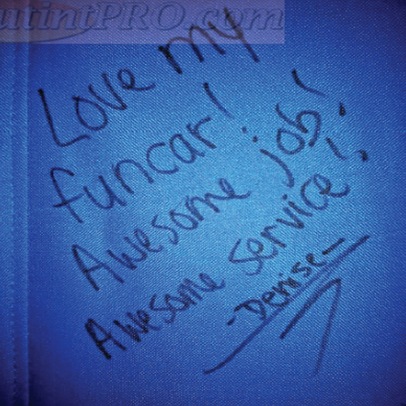 utintPRO.com
Love my
funcar!
Awesome job!
Awesome service!
-Denise-